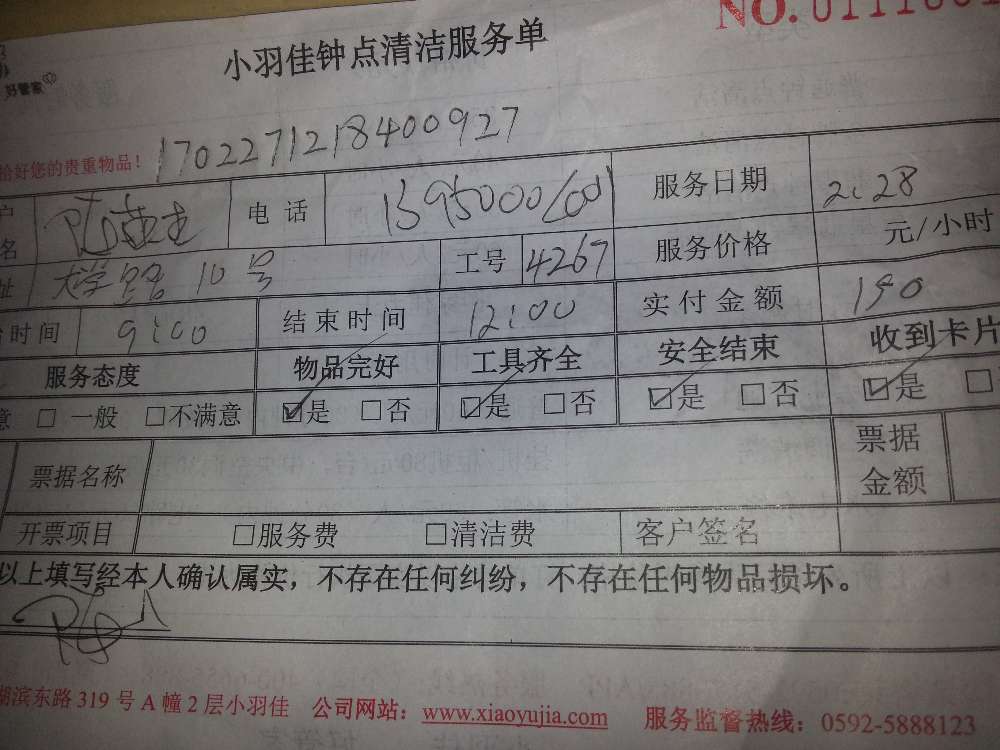 NO.
小羽佳钟点清洁服务单
好管家
1702271218400927
恰好您的贵重物品！
电话 服务日期 2:28
大学路 10号 工号 4267 服务价格 元/小时
时间 9:00 结束时间 12:00 实付金额 190
服务态度 物品完好 工具齐全 安全结束 收到卡片
意 □ 一般 □不满意 ☑是 □否 ☑是 □否 ☑是 □否 ☑是 □
票据名称 票据金额
开票项目 □服务费 □清洁费 客户签名
以上填写经本人确认属实，不存在任何纠纷，不存在任何物品损坏。
湖滨东路 319 号 A 幢 2 层小羽佳 公司网站：www.xiaoyujia.com 服务监督热线：0592-5888123